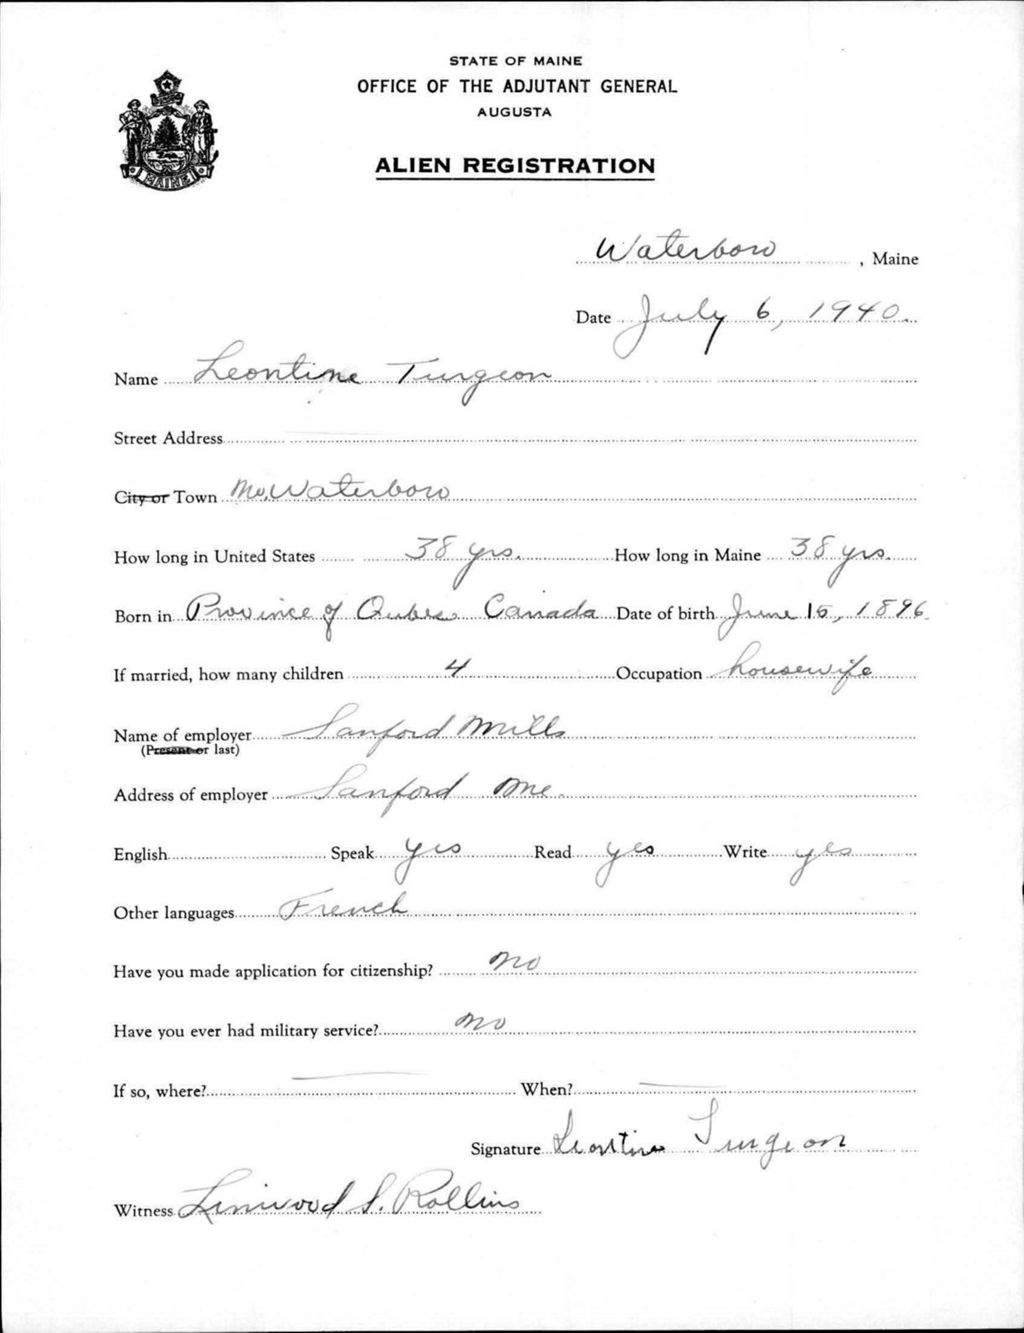 STATE OF MAINE
OFFICE OF THE ADJUTANT GENERAL
AUGUSTA
ALIEN REGISTRATION
MAINE
Waterboro, Maine
Date July 6, 1940.
Name Leontine Turgeon
Street Address
City or Town No. Waterboro
How long in United States 38 yrs. How long in Maine 38 yrs.
Born in Province of Qubec Canada Date of birth June 15, 1896
If married, how many children 4 Occupation housewife
Name of employer Sanford Mills
(Present or last)
Address of employer Sanford Me.
English Speak yes Read yes Write yes
Other languages French
Have you made application for citizenship? no
Have you ever had military service? no
If so, where? When?
Signature Leontine Turgeon
Witness Linwood S. Rollins